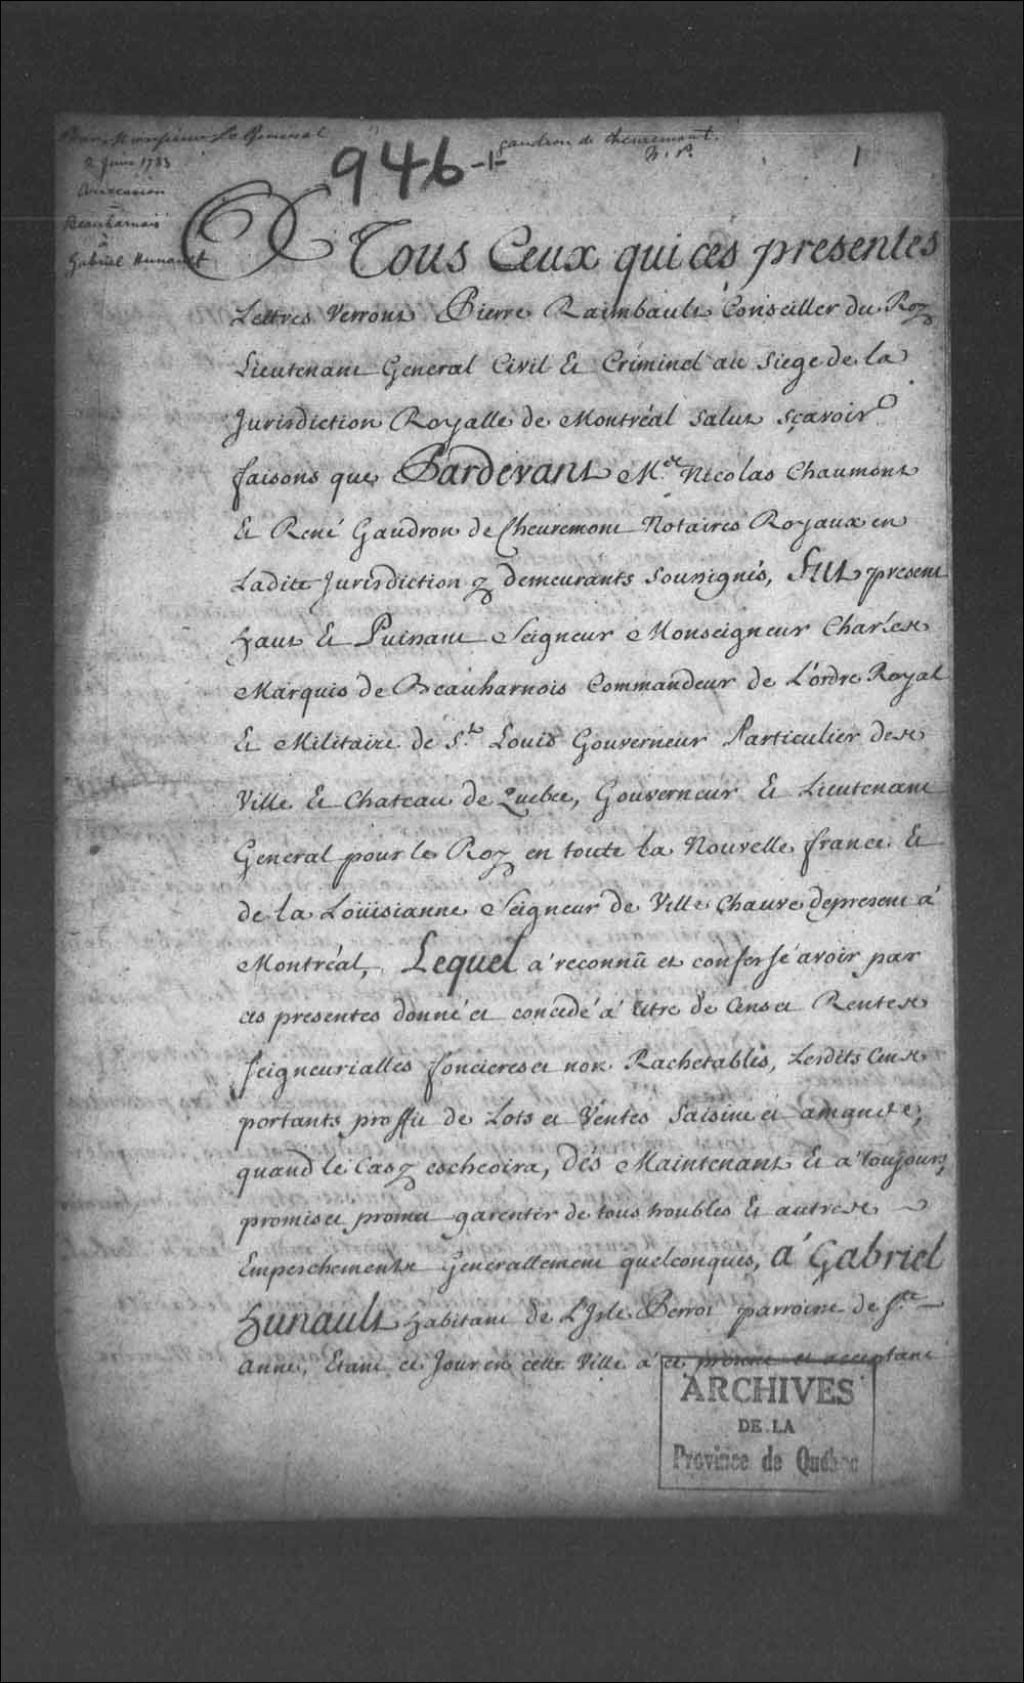 Pour Monsieur Le General
2 Juin 1733
Concession
Beauharnois
à
Gabriel Hunault
946 -1-
gaudron de Chevremont
N. P.
1
A Tous Ceux qui ces presentes
Lettres Verront Pierre Raimbault Conseiller du Roy
Lieutenant General Civil Et Criminel au Siege de la
Jurisdiction Royalle de Montréal Salut sçavoir
faisons que Pardevant Me. Nicolas Chaumont
Et René Gaudron de Chevremont Notaires Royaux en
Ladite Jurisdiction y demeurants Soussignés, Fut present
Haut Et Puissant Seigneur Monseigneur Charles
Marquis de Beauharnois Commandeur de L'ordre Royal
Et Militaire de St. Louis Gouverneur Particulier des
Ville Et Chateau de Quebec, Gouverneur Et Lieutenant
General pour le Roy en toute la Nouvelle france Et
de la Loüisianne Seigneur de Ville Chauve depresent á
Montréal, Lequel a reconnû et confessé avoir par
ces presentes donné et concedé á titre de Cens et Rentes
seigneurialles foncieres et non Rachetables, Lesdits Cens
portants proffit de Lots et Ventes Saisine et amande,
quand le Cas y escheoira, dés Maintenant Et a toujours,
promis et promet garentir de tous troubles Et autres
Empeschements Generallement quelconques, á Gabriel
Hunault habitant de L'Isle Perrot parroisse de Ste
Anne, Etant ce Jour en cette Ville á ce present et acceptant
ARCHIVES
DE LA
Province de Québec